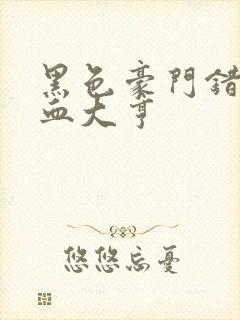 黑色豪門錯
血大亨
悠悠忘憂